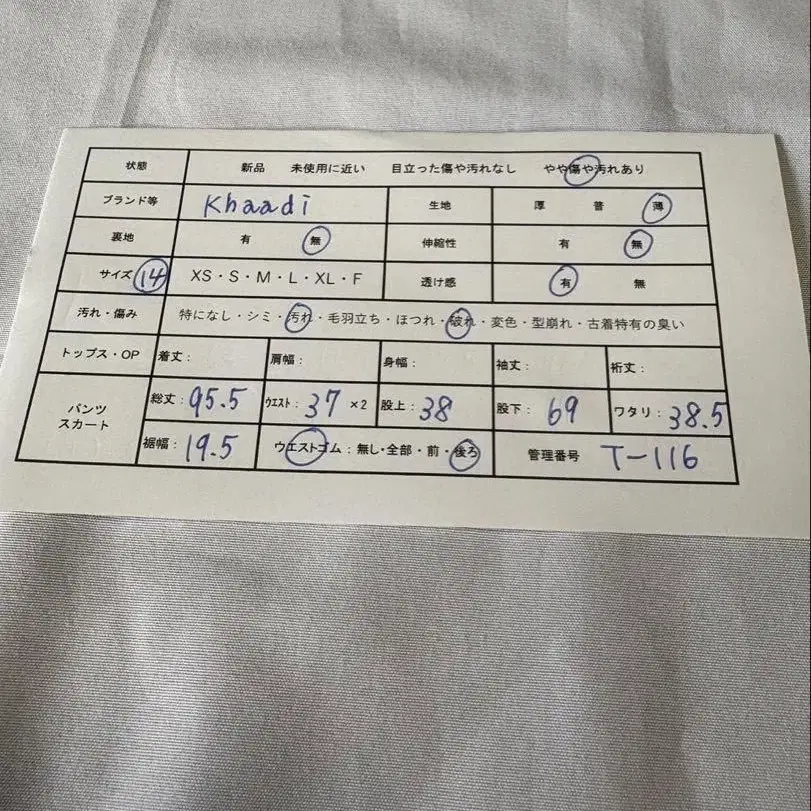 状態 新品 未使用に近い 目立った傷や汚れなし やや傷や汚れあり
ブランド等 Khaadi 生地 厚 普 薄
裏地 有 無 伸縮性 有 無
サイズ 14 XS・S・M・L・XL・F 透け感 有 無
汚れ・傷み 特になし・シミ・汚れ・毛羽立ち・ほつれ・破れ・変色・型崩れ・古着特有の臭い
トップス・OP 着丈: 肩幅: 身幅: 袖丈: 裄丈:
パンツ スカート 総丈:95.5 ウエスト:37 ×2 股上:38 股下:69 ワタリ:38.5
裾幅:19.5 ウエストゴム:無し・全部・前・後ろ 管理番号 T-116